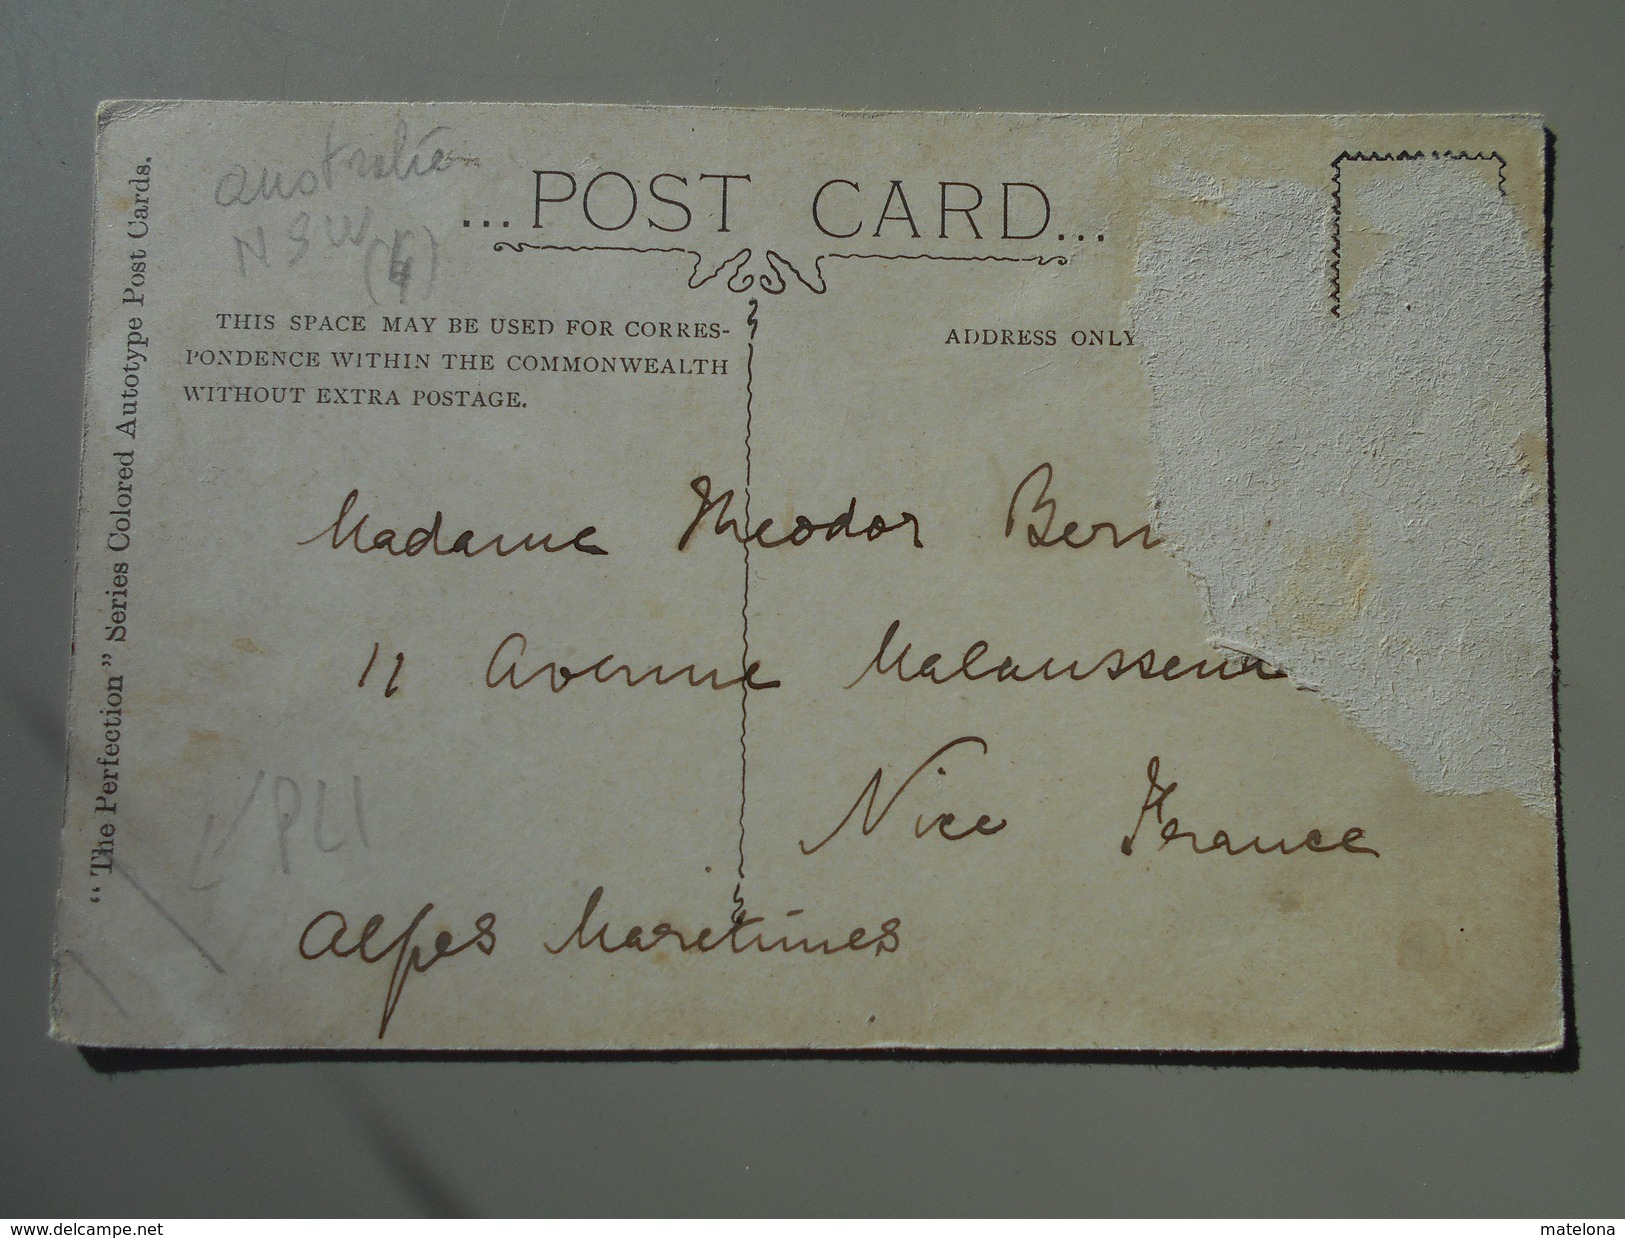 australie
NSW
(4)
...POST CARD...
THIS SPACE MAY BE USED FOR CORRES-
PONDENCE WITHIN THE COMMONWEALTH
WITHOUT EXTRA POSTAGE.
ADDRESS ONLY
"The Perfection" Series Colored Autotype Post Cards.
Madame Theodor Bern
11 Avenue Malaussena
Nice France
Alpes Maritimes
PLI
www.delcampe.net
matelona